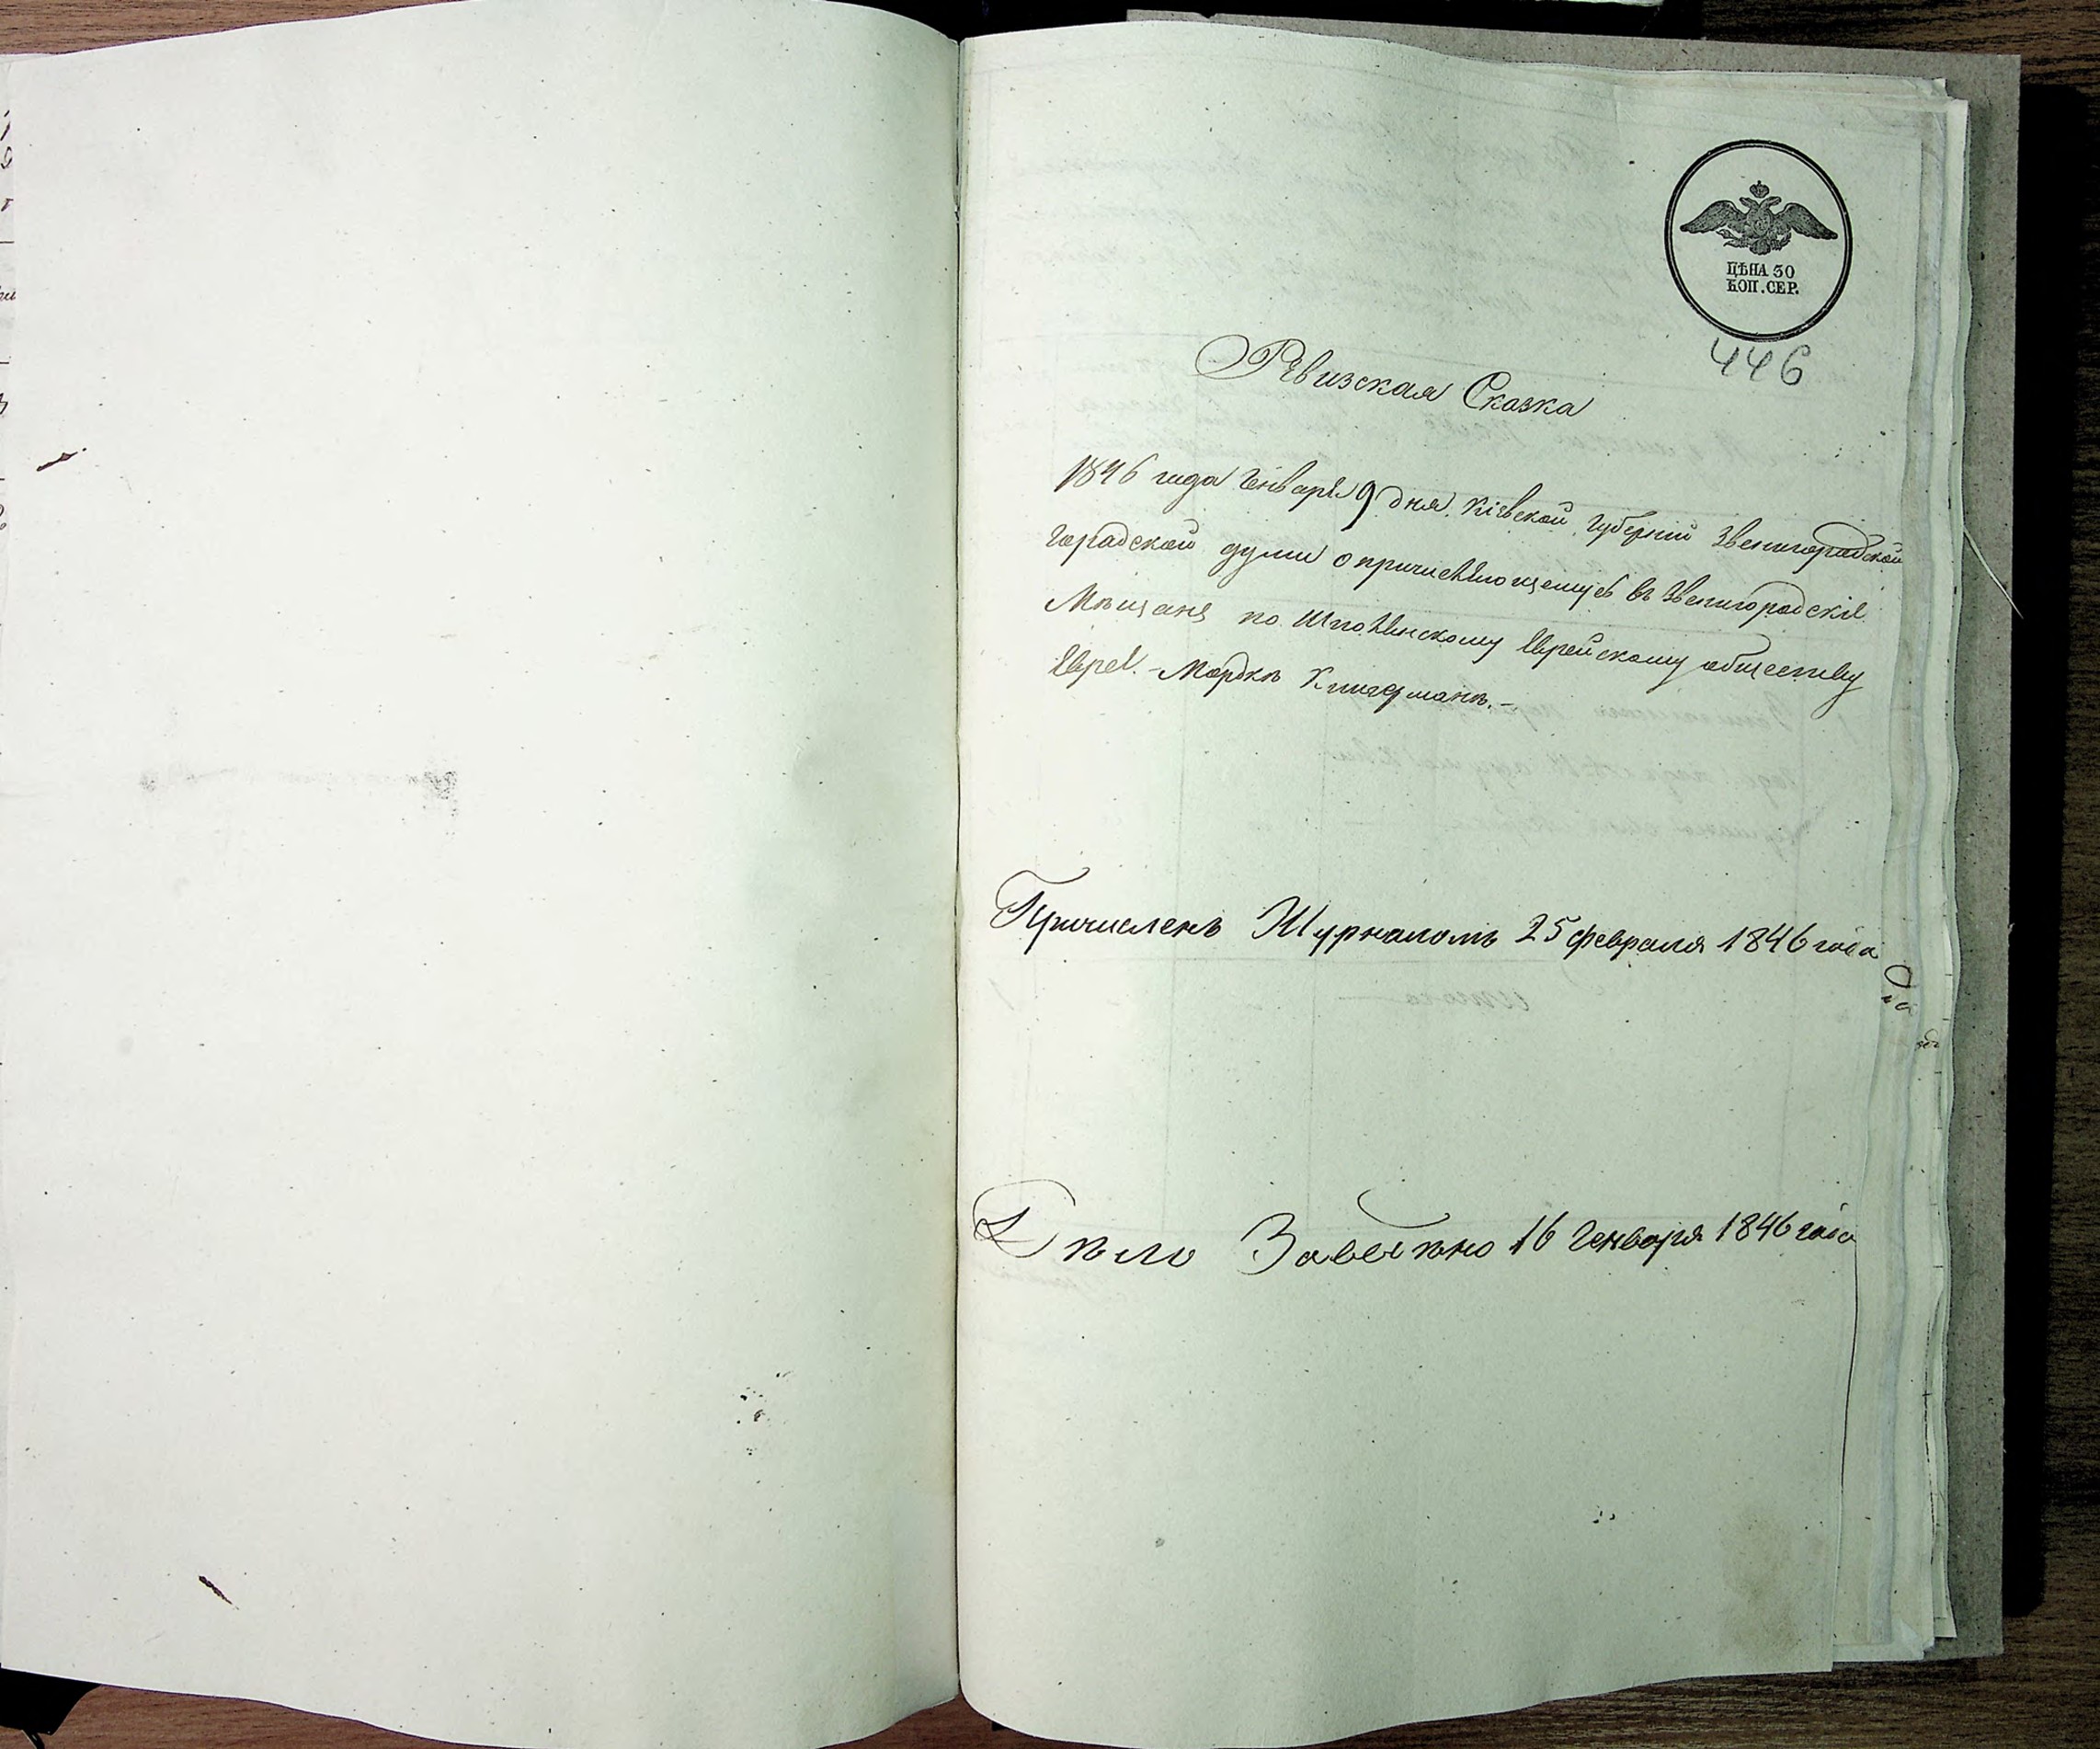 ЦѢНА 30
КОП. СЕР.
446
Ревизская Сказка
1846 года Генваря 9 дня. Кіевской Губерніи Звенигородской
Городской думы о причисляющемуся въ Звенигородскіе
Мѣщане по Шполянскому Еврейскому обществу
Еврея. - Мордкѣ
Причисленъ Журналомъ 25 февраля 1846 года
Дѣло Заведено 16 Генваря 1846 года